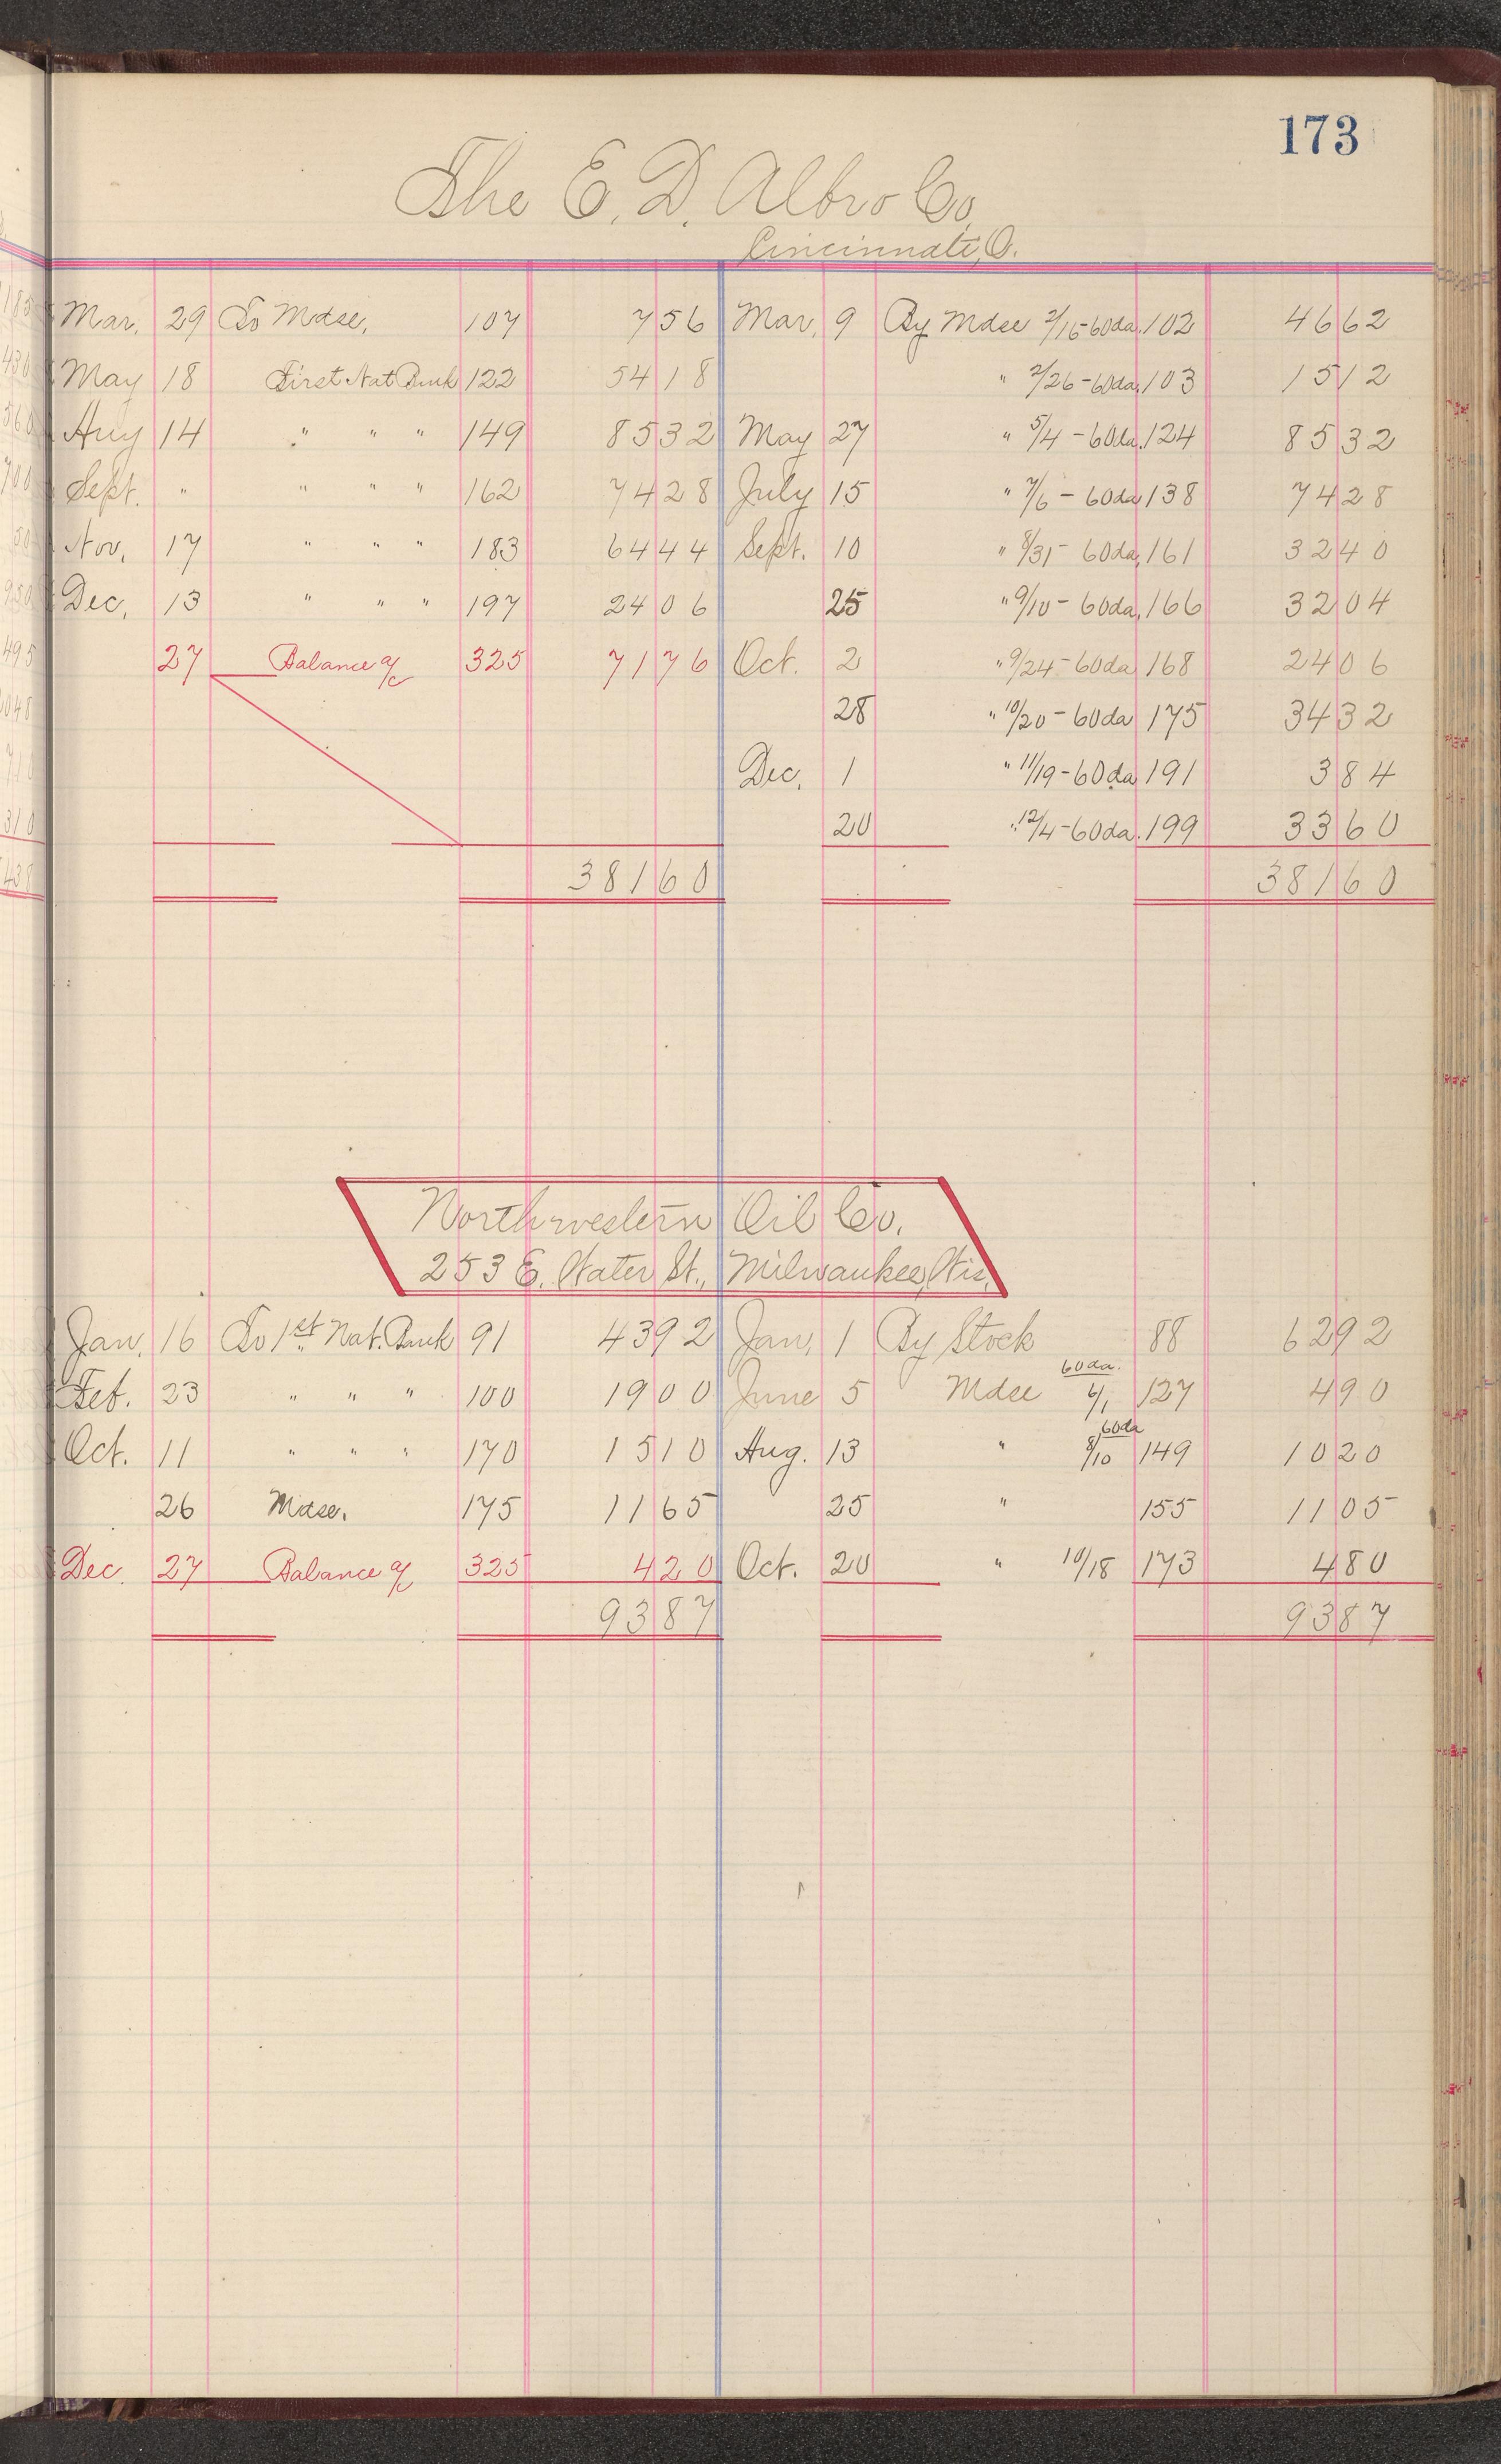 173
The E. D. Albro Co.
Cincinnati, O.
Mar. 29 To Mdse, 107 7 56 Mar. 9 By Mdse 2/15-60da. 102 46 62
May 18 First Nat Bank 122 54 18 " 2/26-60da. 103 15 12
Aug 14 " " " 149 85 32 May 27 " 5/4-60da. 124 85 32
Sept. " " " " 162 74 28 July 15 " 7/6-60da 138 74 28
Nov. 17 " " " 183 64 44 Sept. 10 " 8/31-60da, 161 32 40
Dec, 13 " " " 197 24 06 25 " 9/10-60da, 166 32 04
27 Balance a/c 325 71 76 Oct. 2 " 9/24-60da 168 24 06
28 " 10/20-60da 175 34 32
Dec. 1 " 11/19-60da 191 3 84
20 " 12/4-60da. 199 33 60
381 60 381 60
Northwestern Oil Co.
253 E. Water St., Milwaukee, Wis.
Jan. 16 To 1st Nat. Bank 91 43 92 Jan, 1 By Stock 88 62 92
Feb. 23 " " " 100 19 00 June 5 Mdse 60da. 6/1 127 4 90
Oct. 11 " " " 170 15 10 Aug. 13 " 60da 8/10 149 10 20
26 Mdse. 175 11 65 25 " 155 11 05
Dec. 27 Balance a/c 325 4 20 Oct. 20 " 10/18 173 4 80
93 87 93 87